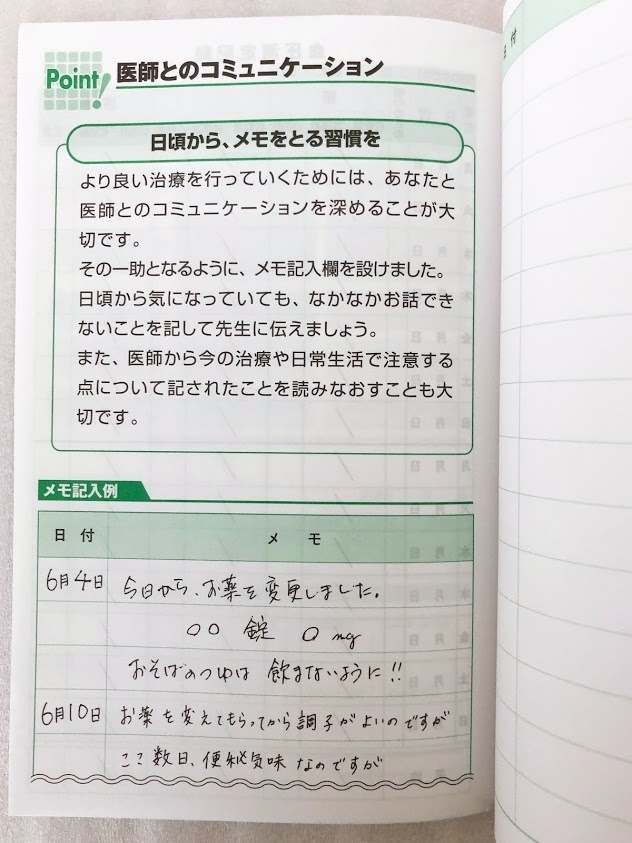 Point!
医師とのコミュニケーション
日頃から、メモをとる習慣を
より良い治療を行っていくためには、あなたと
医師とのコミュニケーションを深めることが大
切です。
その一助となるように、メモ記入欄を設けました。
日頃から気になっていても、なかなかお話でき
ないことを記して先生に伝えましょう。
また、医師から今の治療や日常生活で注意する
点について記されたことを読みなおすことも大
切です。
メモ記入例
日付 メモ
6月4日 今日から、お薬を変更しました。
○○ 錠 ○ mg
おそばのつゆは 飲まないように!!
6月10日 お薬を変えてもらってから調子がよいのですが
ここ数日、便秘気味なのですが
日 付